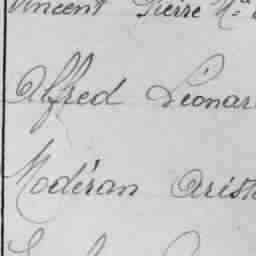 Vincent Pierre M.
Alfred Léonar
Modéran Arist